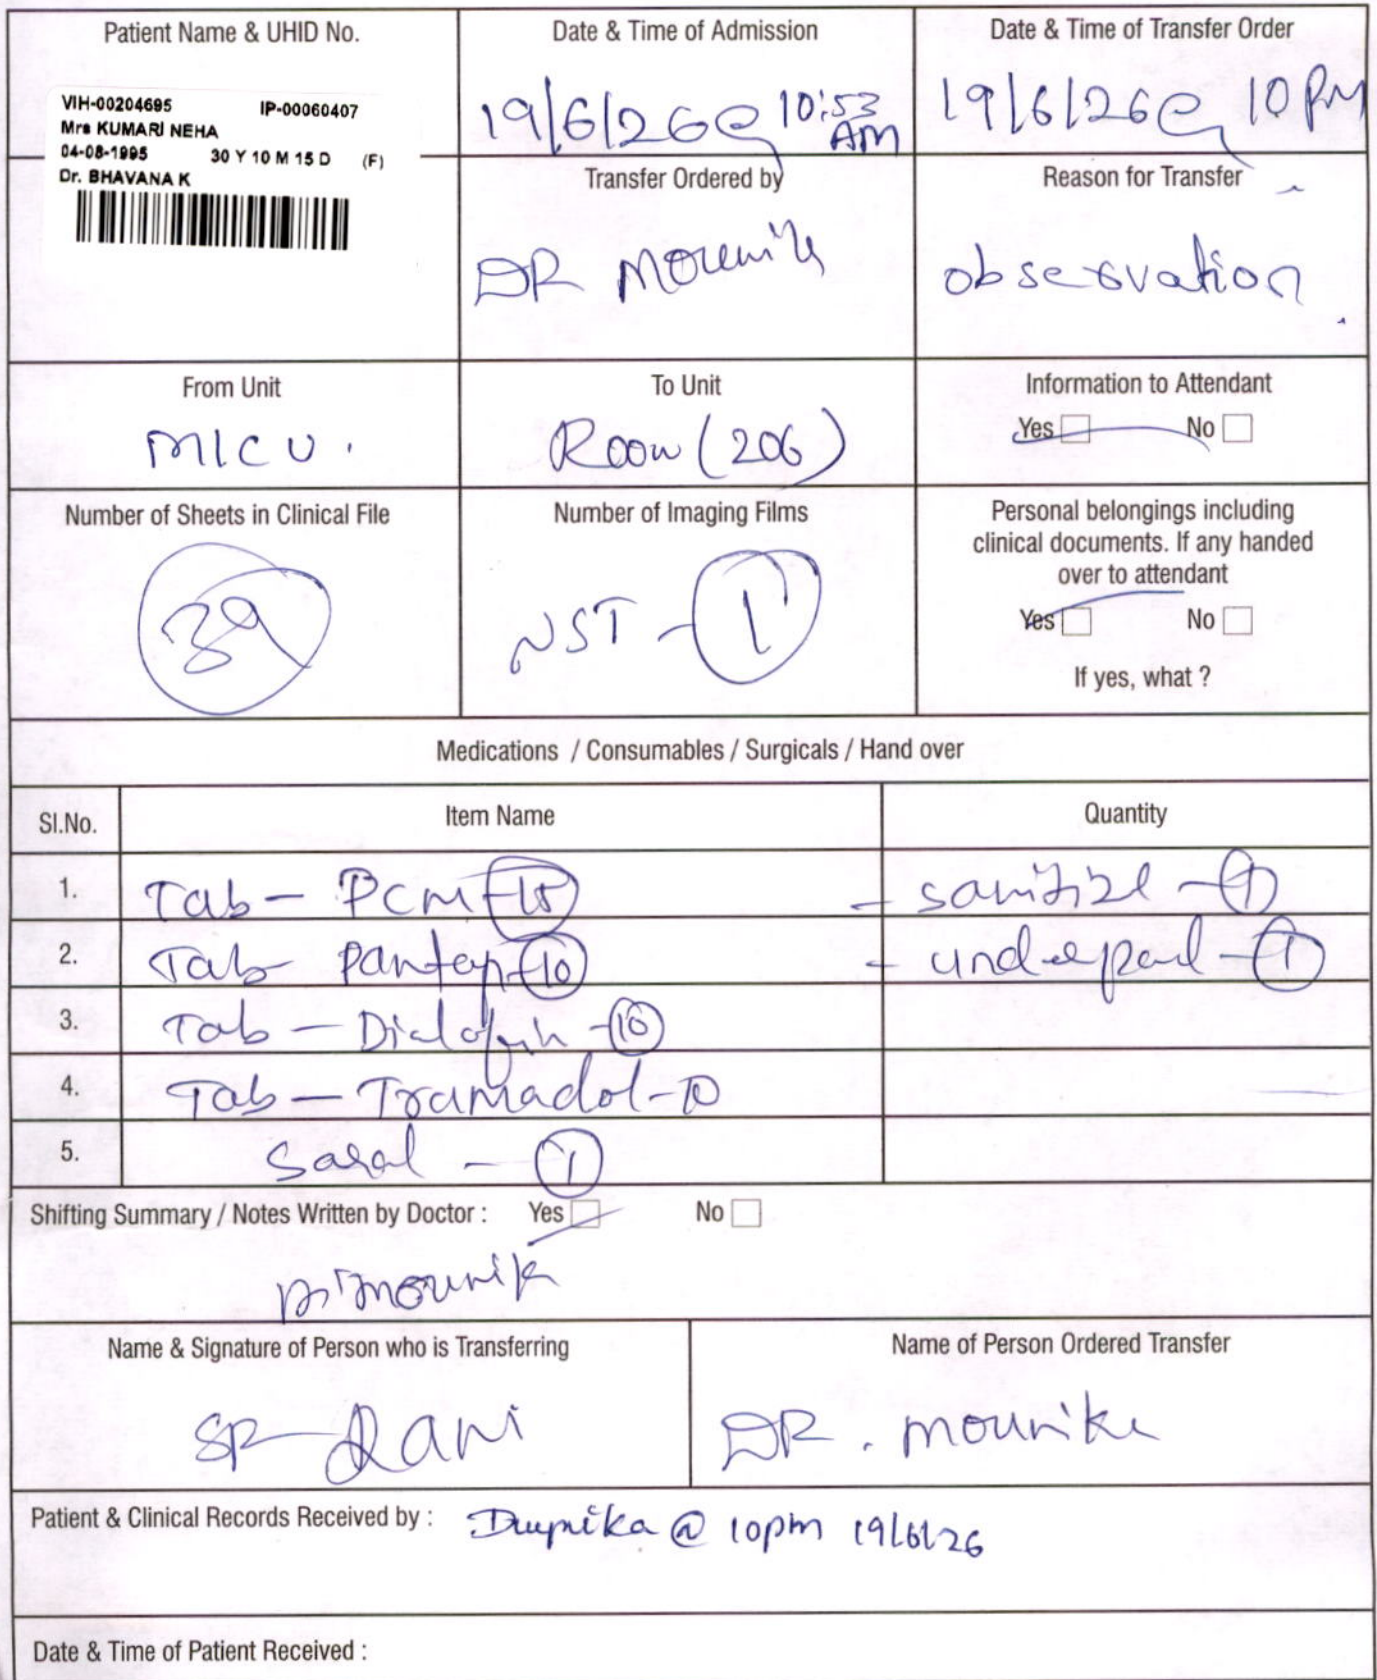 Patient Name & UHID No.
VIH-00204695 IP-00060407
Mrs KUMARI NEHA
04-08-1995 30 Y 10 M 15 D (F)
Dr. BHAVANA K
Date & Time of Admission
19/6/26@ 10:53 AM
Date & Time of Transfer Order
19/6/26@ 10 PM
Transfer Ordered by
DR Mounika
Reason for Transfer
observation
From Unit
MICU.
To Unit
Room (206)
Information to Attendant
Yes No
Number of Sheets in Clinical File
39
Number of Imaging Films
NST - 1
Personal belongings including
clinical documents. If any handed
over to attendant
Yes No
If yes, what ?
Medications / Consumables / Surgicals / Hand over
Sl.No. Item Name Quantity
1. Tab - PCM - 15 - sanitizer - 1
2. Tab - Pantop - 10 - underpad - 1
3. Tab - - 10
4. Tab - Tramadol - 10
5. - 1
Shifting Summary / Notes Written by Doctor : Yes No
Dr mounika
Name & Signature of Person who is Transferring
SR Rani
Name of Person Ordered Transfer
DR. mounika
Patient & Clinical Records Received by : Deepika @ 10pm 19/6/26
Date & Time of Patient Received :